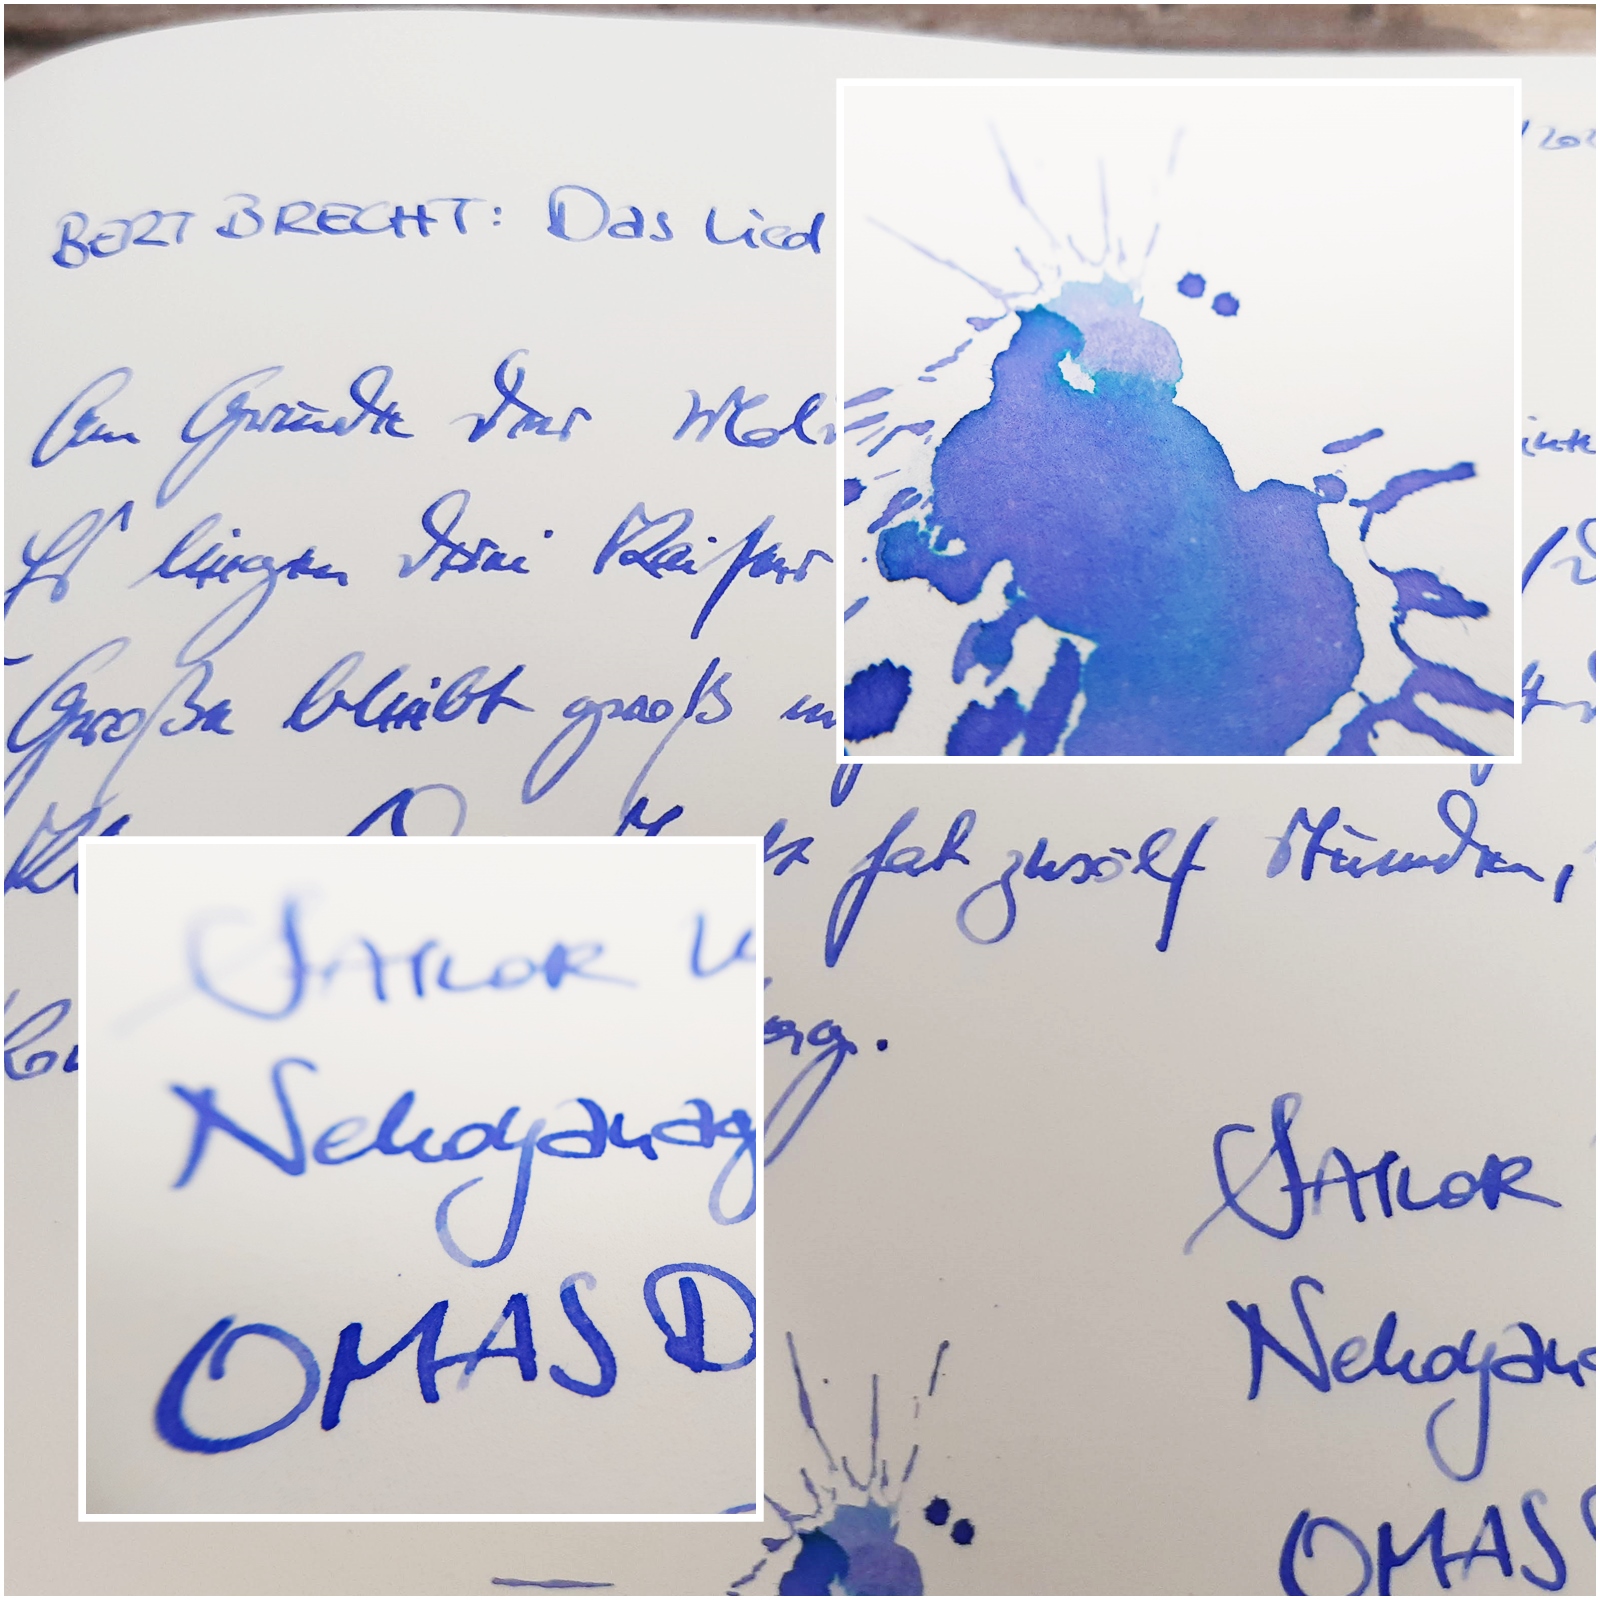 BERT BRECHT: Das Lied
Am Grunde der Mol
Es liegen drei Kaiser
Große bleibt groß
hat zwölf Stunden,
SAILOR
Nekoyanag
OMAS D
SAILOR
Nekoyana
OMAS